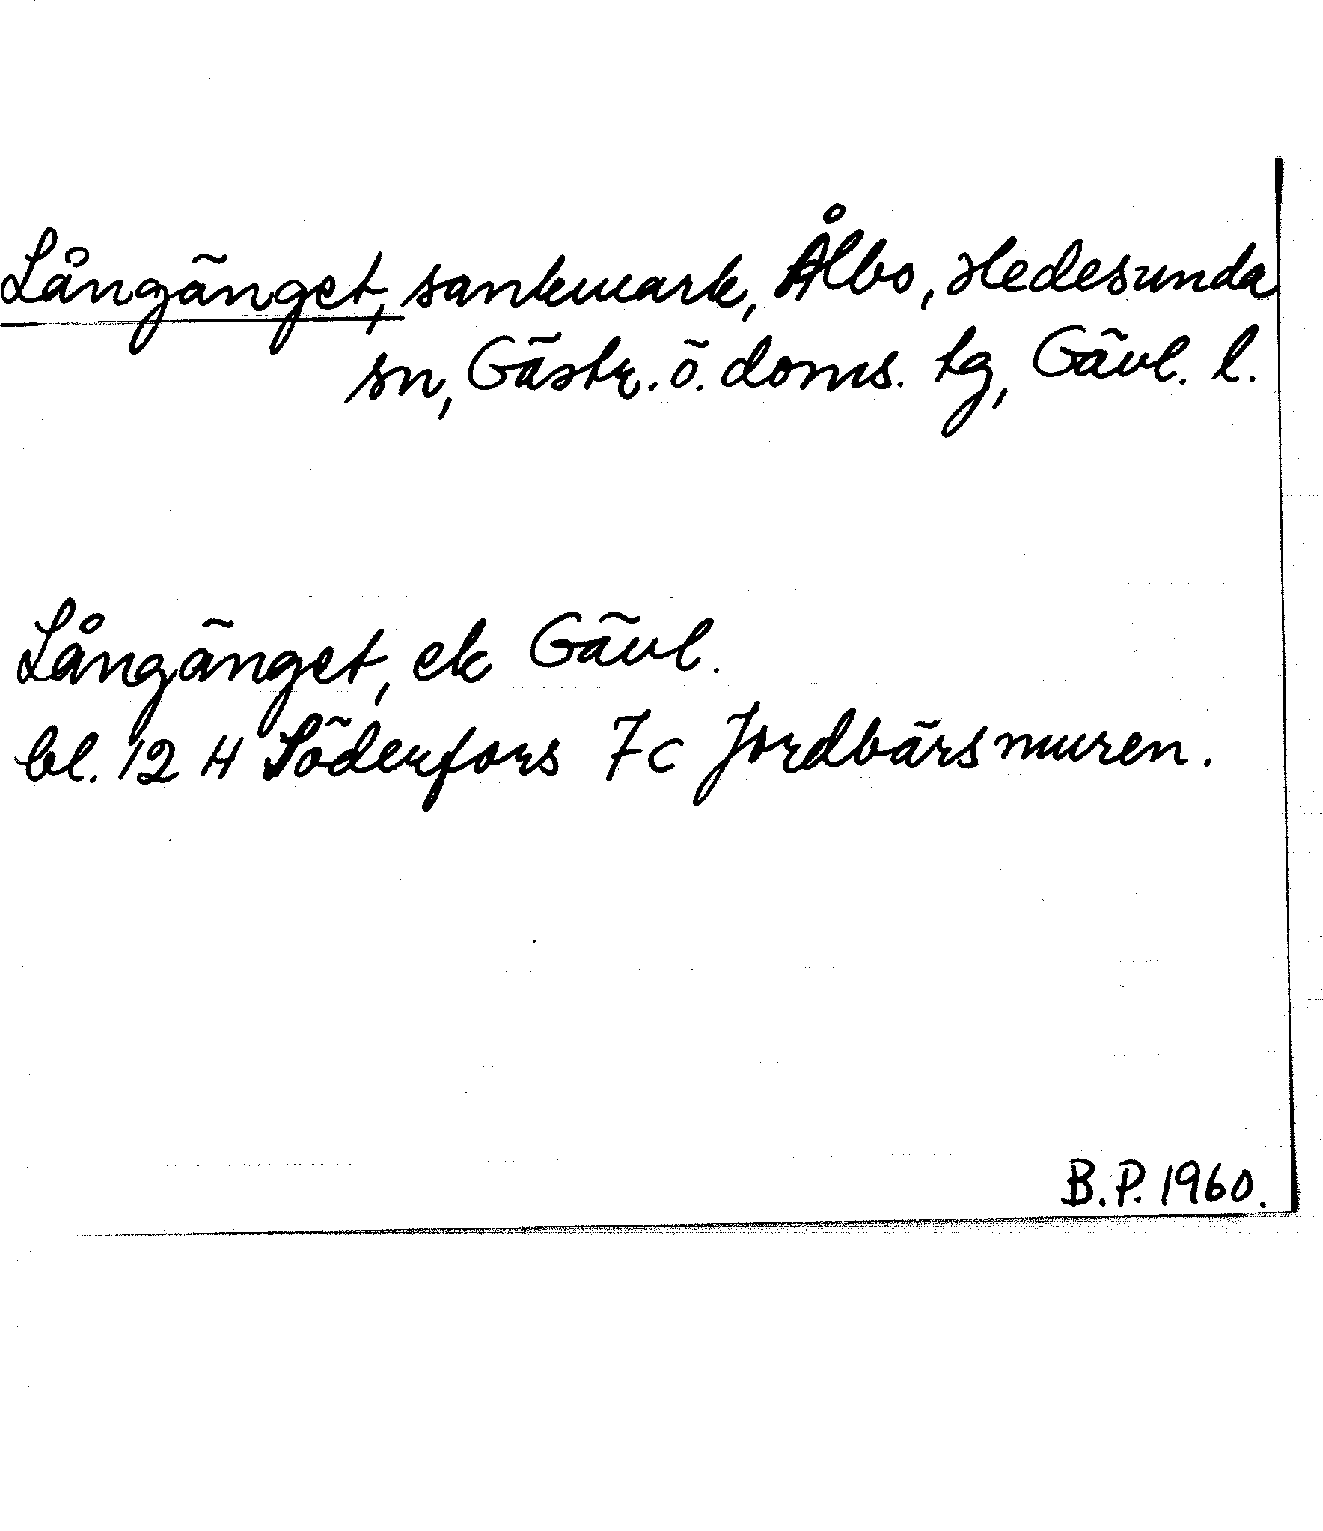 Långänget, sankmark, Ålbo, Hedesunda
sn, Gästr. ö. doms. tg, Gävl. l.
Långänget, ek Gävl.
bl. 12 H Söderfors 7c Jordbärsmuren.
B.P. 1960.